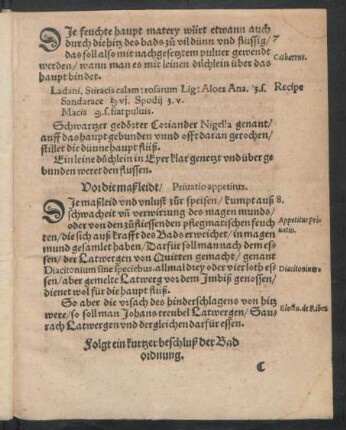 DJe feuchte haupt matery würt etwann auch
durch die hitz des bads zů vil dünn vnd flüssig/
das soll also mit nachgesetztem puluer gewendt
werden/ wann man es mit leinen düchlein über das
haupt bindet.
7
Catharrus.
Ladani, Stiracis calam: rosarum Lig: Aloes Ana. ʒ.ſ.
Recipe
Sandarace
Spodij ʒ.v.
Macis fiat puluis.
Schwartzer gedörzter Coriander Nigella genant/
auff das haupt gebunden vnnd offt daran gerochen/
stillet die dünne haupt flüß.
Ein leine düchlein in Eyerklar genetzt vnd über ge
bunden weret den flüssen.
Vor die maßleidt/ Priuatio appetitus.
DJe maßleid vnd vnlust zůr speisen/ kumpt auß
schwacheit vñ verwirung des magen munds/
oder von den zůfliessenden pflegmatischen feuch
ten/ die sich auß krafft des Bads erweichet/ in magen
mund gesamlet haben/ Darfür soll man nach dem es
sen/ der Latwergen von Quitten gemacht/ genant
Diacitonium sine speciebus allmal drey oder vier loth es
sen/ aber gemelte Latwerg vor dem Imbiß genossen/
dienet wol für die haupt flüß.
8.
Appetitus pri
uatio.
Diacitonium.
So aber die vrsach des hinderschlagens von hitz
were/ so soll man Johans treubel Latwergen/ Sau
rach Latwergen vnd dergleichen darfür essen.
Electu. de Ribes
Folgt ein kurtzer beschluß der Bad
ordnung.
C